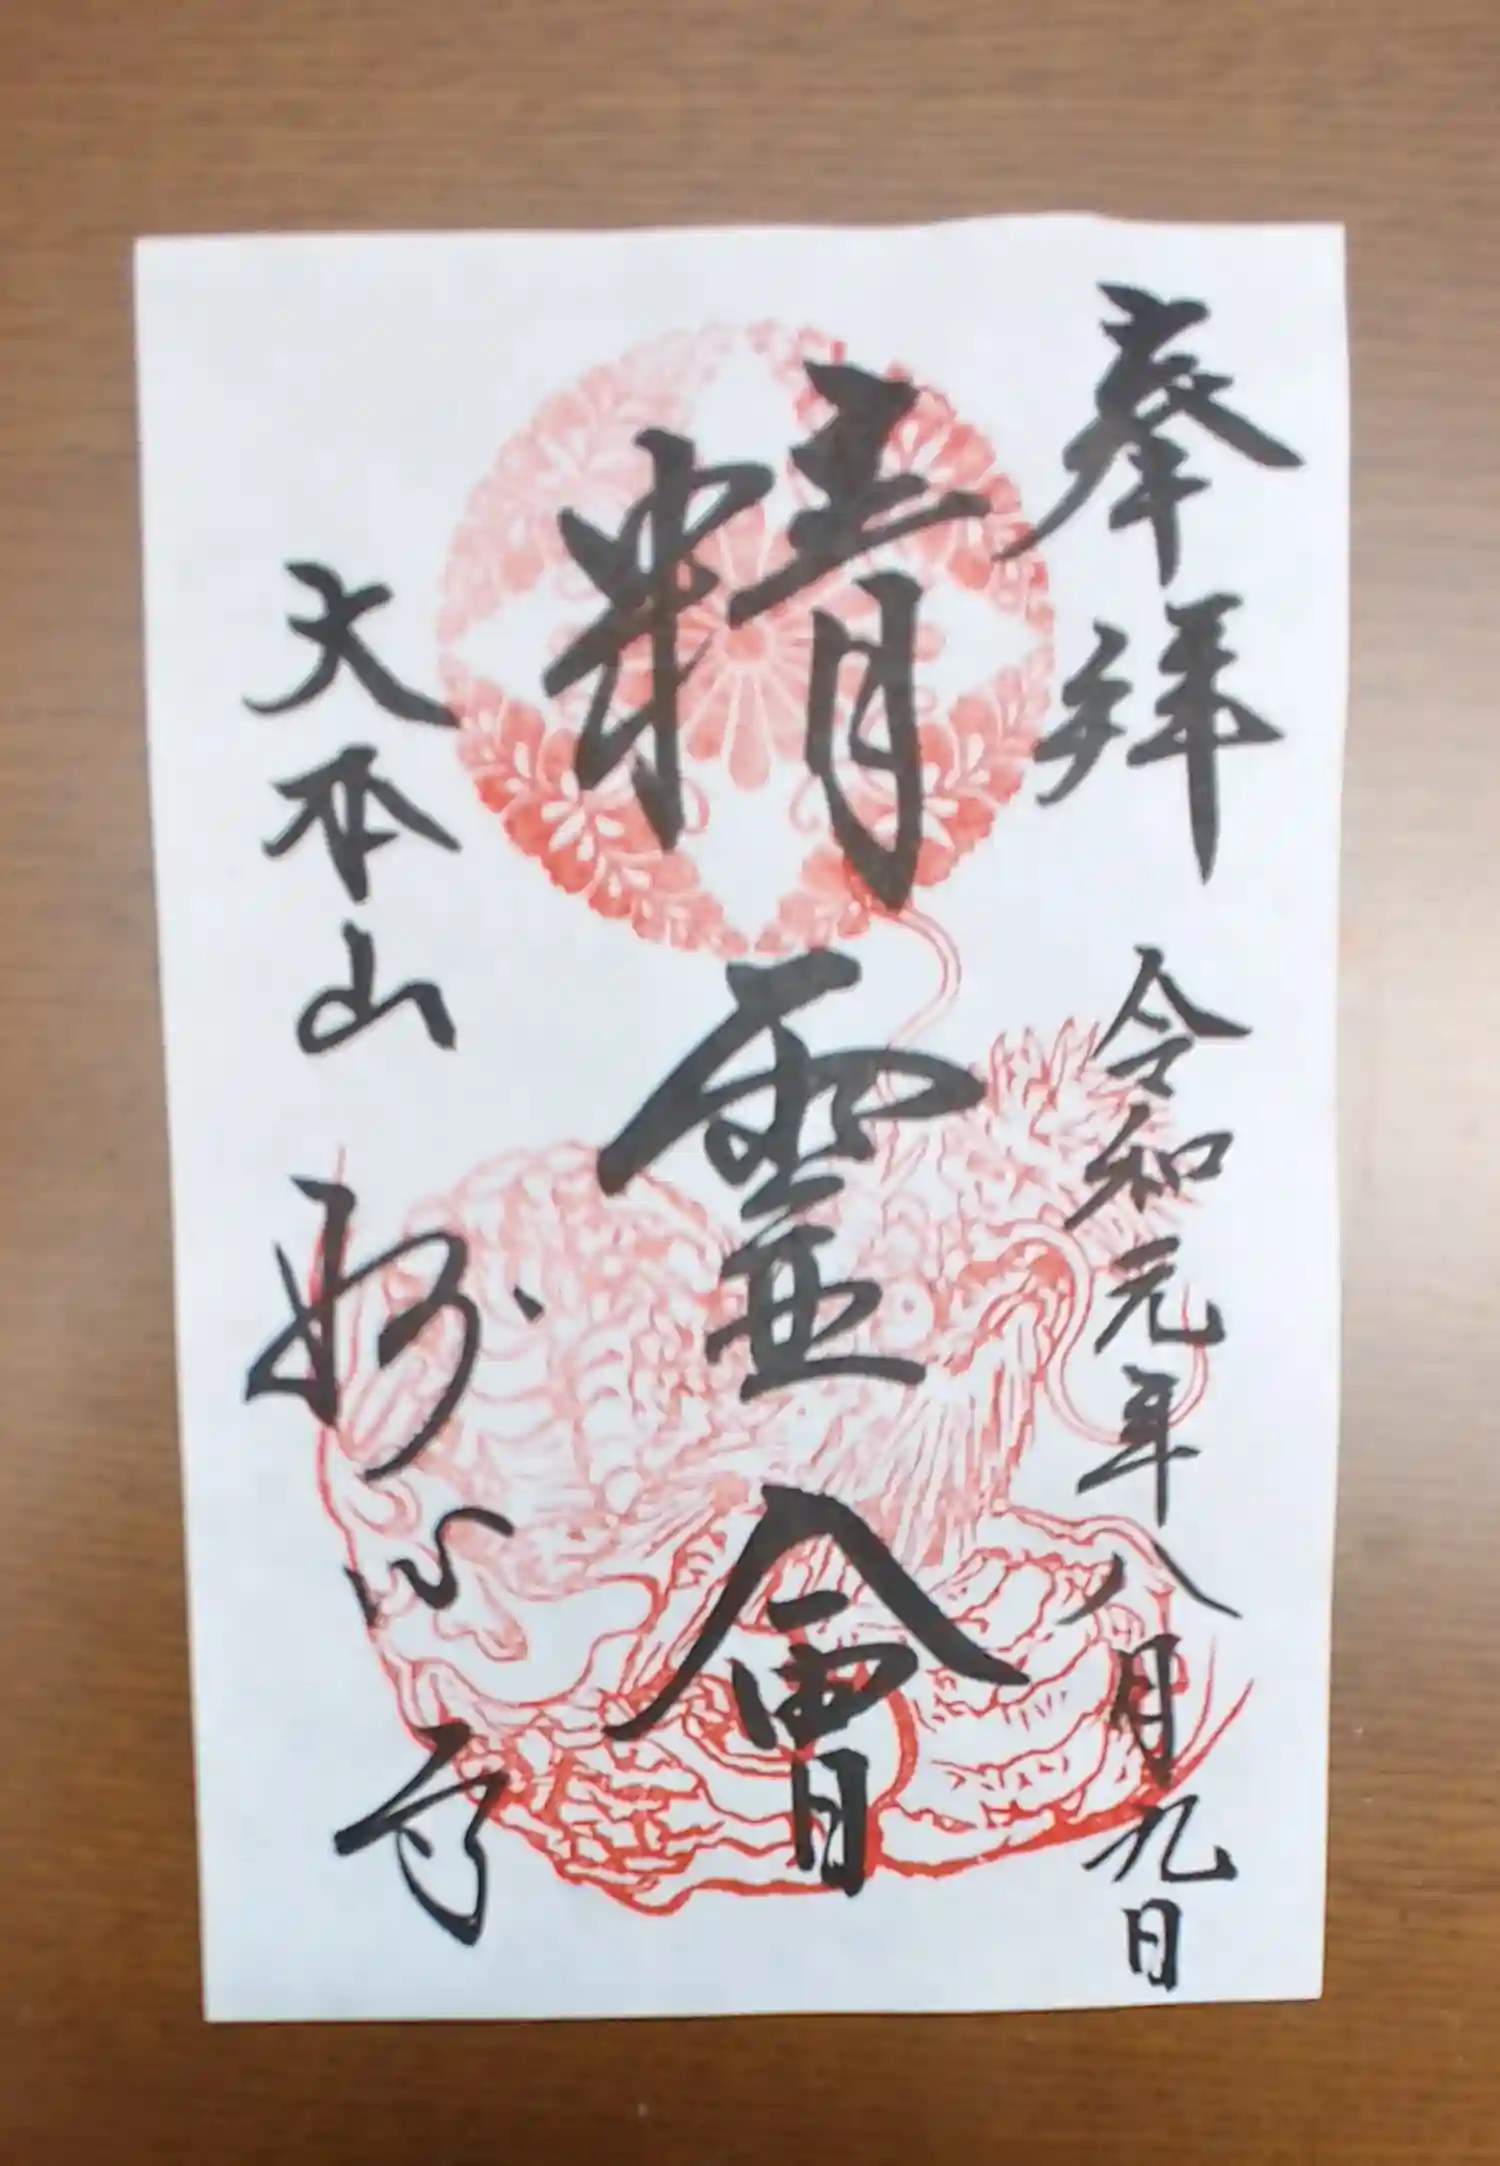 奉拜
令和元年八月九日
精靈會
大本山妙心寺